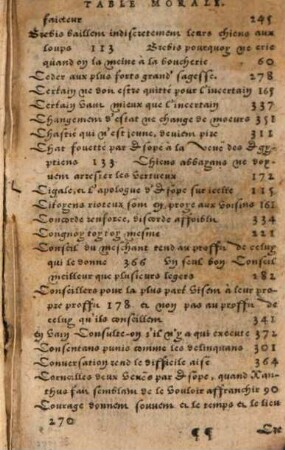 TABLE MORALE.
faicteur 245
Brebis baillent indiscretement leurs chiens aux
loups 113 Brebis pourquoy ne crie
quand on la meine à la boucherie 60
Ceder aux plus forts grand' sagesse. 278
Certain ne doit estre quitté pour l'incertain 165
Certain vaut mieux que l'incertain 337
Changement d'estat ne change de moeurs 351
Chastié qui n'est jeune, devient pire 311
Chat fouetté par Esope à la veue des Egy
ptiens 133 Chiens abbayans ne
arrester les vertueux 172
Cigale, et l'apologue d'Esope sur icelle 115
Citoyens rioteux sont en proye aux voisins 161
Concorde renforce, discorde affoiblit 334
Congnoy toy toy mesme 221
Conseil du meschant rend au proffit de celuy
qui le donne 366 Un seul bon Conseil
meilleur que plusieurs legers 282
Conseillers pour la plus part visent à leur pro
pre proffit 178 et non pas au proffit de
celuy, qu'ils conseillent 341
En vain Consulte-on s'il n'y a qui execute 372
Consentans punis comme les delinquans 301
Conversation rend le difficile aisé 364
Corneilles deux veues par Esope, quand Xan
thus fait semblant de le vouloir affranchir 90
Courage donnent souvent et le temps et le lieu
270
¶¶ Cre